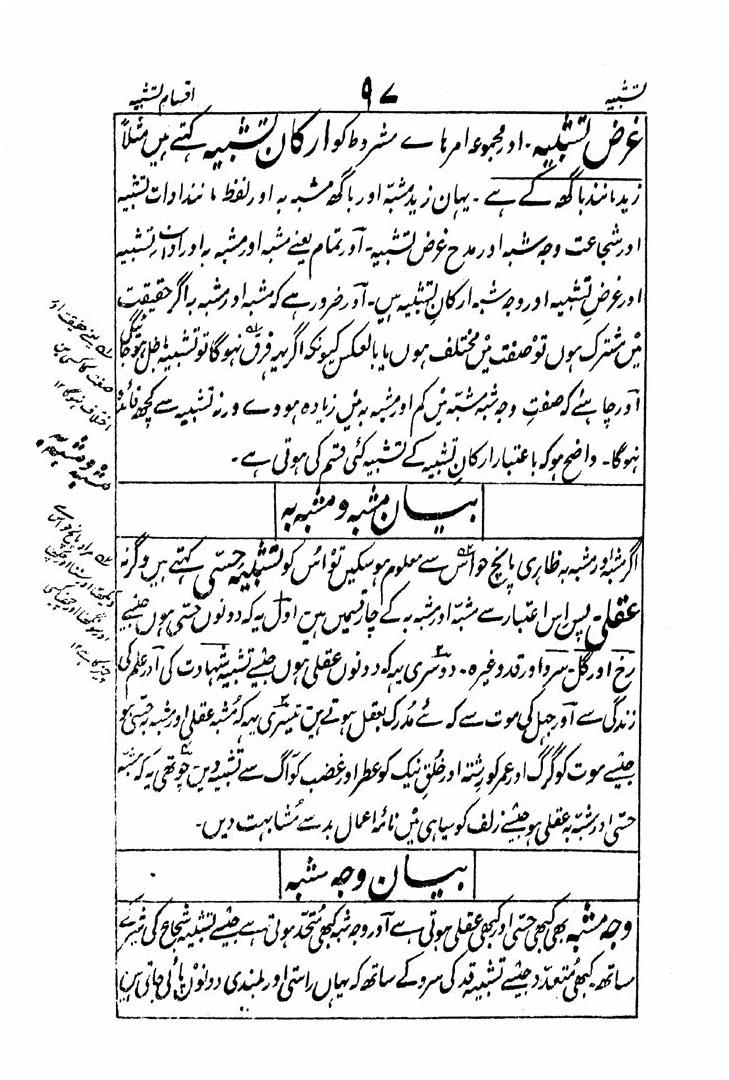 تشبیہ
۹۷
اقسام تشبیہ
غرض تشبیہ۔ اور مجموعہ امرہاے مشروط کو ارکان تشبیہ کہتے ہیں مثلاً
زید مانند باگھ کے ہے۔ یہاں زید مشبّہ اور باگھ مشبہ بہ اور لفظ مانند ادات تشبیہ
اور شجاعت وجہ شبہ اور مدح غرض تشبیہ۔ اور تمام یعنے مشبہ اور مشبہ بہ اور ادات تشبیہ
اور غرض تشبیہ اور وجہ شبہ ارکان تشبیہ ہیں۔ اور ضرور ہے کہ مشبہ اور مشبہ بہ اگر حقیقت
میں مشترک ہوں تو صفت میں مختلف ہوں یا بالعکس کیونکہ اگر یہ فرق نہوگا تو تشبیہ باطل ہو جائیگی
اور چاہئے کہ صفت وجہ شبہ مشبہ میں کم اور مشبہ بہ میں زیادہ ہووے ورنہ تشبیہ سے کچھ فائدہ
نہوگا۔ واضح ہو کہ باعتبار ارکان تشبیہ کے تشبیہ کئی قسم کی ہوتی ہے۔
بیان مشبہ و مشبہ بہ
اگر مشبہ اور مشبہ بہ ظاہری پانچ حواس سے معلوم ہو سکیں تو اُس کو تشبیہ حسّی کہتے ہیں وگرنہ
عقلی۔ پس اس اعتبار سے مشبّہ اور مشبہ بہ کے چار قسمیں ہیں اول یہ کہ دونوں حسّی ہوں جیسے
رخ اور گل۔ سرو اور قد وغیرہ۔ دوسری یہ کہ دونوں عقلی ہوں جیسے تشبیہ شہادت کی اور علم کی
زندگی سے اور جہل کی موت سے کہ یے مُدرک بعقل ہوتے ہیں تیسری یہ کہ مُشبہ عقلی اور مشبہ بہ حسّی ہو
جیسے موت کو گرگ اور عمر کو رشتہ اور خُلق نیک کو عطر اور غضب کو آگ سے تشبیہ دیں۔ چوتھی یہ کہ مشبہ
حسّی اور مشبہ بہ عقلی ہو جیسے زلف کو سیاہی میں نامۂ اعمال بد سے مُشابہت دیں۔
بیان وجہ شبہ
وجہ شبہ بھی کبھی حسّی اور کبھی عقلی ہوتی ہے اور وجہ شبہ کبھی مُتّحد ہوتی ہے جیسے تشبیہ شجاع کی شیر کے
ساتھ۔ کبھی مُتعدّد جیسے تشبیہ قد کی سرو کے ساتھ کہ یہاں راستی اور بلندی دونوں پائی جاتی ہیں
یعنے حقیقت اور
صفت کا کسی میں
اختلاف نہوگا ۱۲
مشبہ و مشبہ بہ
مراد پانچ حواس سے
دیکھنا اور سننا اور چکھنا
اور سونگھنا اور چھونا کسی
چیز کا ہے ۱۲